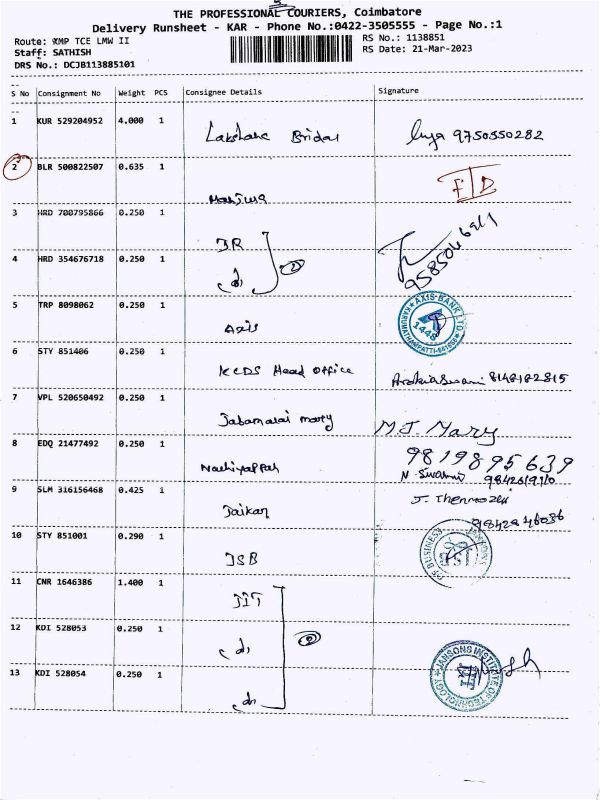 THE PROFESSIONAL COURIERS, Coimbatore
Delivery Runsheet - KAR - Phone No.:0422-3505555 - Page No.:1
Route: KMP TCE LMW II
RS No.: 1138851
Staff: SATHISH
RS Date: 21-Mar-2023
DRS No.: DCJB113885101
S No Consignment No Weight PCS Consignee Details Signature
1 KUR 529204952 4.000 1 Bridal 9750550282
2 BLR 500822507 0.635 1 F/D
3 HRD 700795866 0.250 1 JR
4 HRD 354676718 0.250 1 do 2
5 TRP 8098062 0.250 1 Axis AXIS BANK LTD
6 STY 851406 0.250 1 KCDS Head office 8148182815
7 VPL 520650492 0.250 1 Jabamalai mary M J. Mary
9819895639
8 EDQ 21477492 0.250 1 Nachiyappan N. Swamy
9 SLM 316156468 0.425 1 Jaikar J. Thenmozhi
10 STY 851001 0.290 1 JSB OF BUSINESS
11 CNR 1646386 1.400 1 JIT
12 KDI 528053 0.250 1 do
13 KDI 528054 0.250 1 do JANSONS INSTITUTE OF TECHNOLOGY